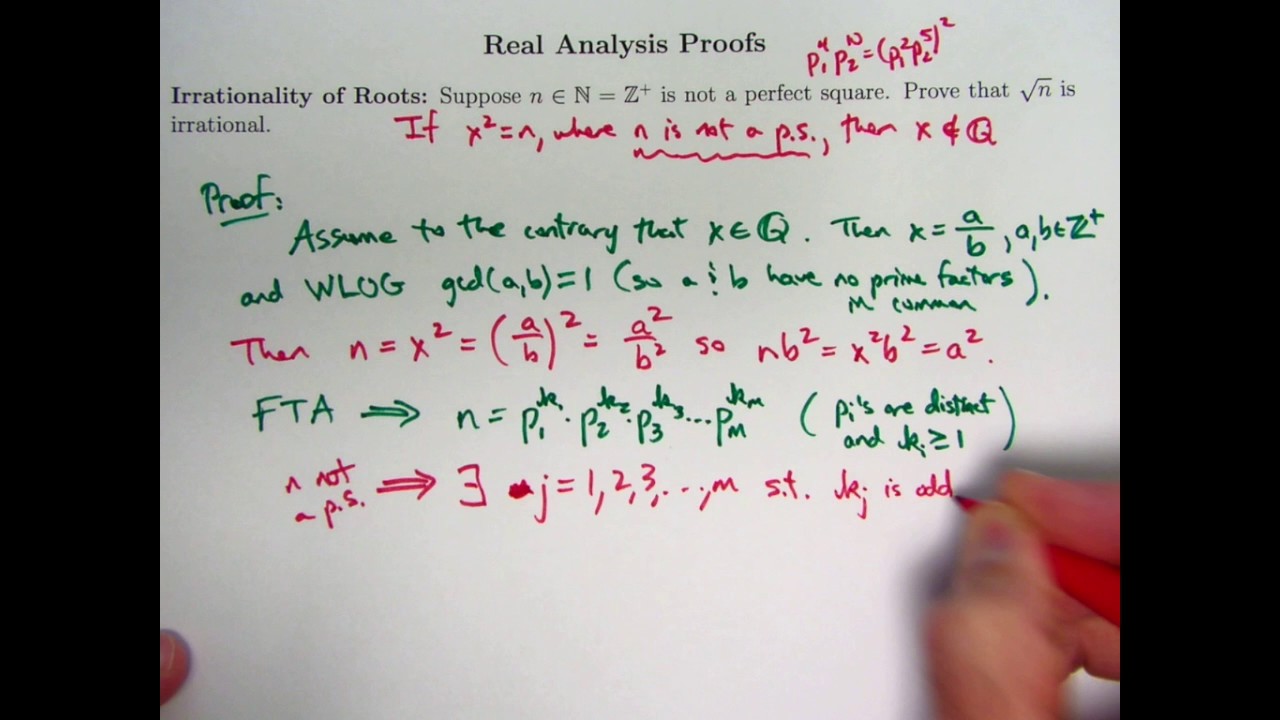 Real Analysis Proofs
p₁⁴p₂¹⁰=(p₁²p₂⁵)²
Irrationality of Roots: Suppose n ∈ ℕ = ℤ⁺ is not a perfect square. Prove that √n is
irrational.
If x²=n, where n is not a p.s., then x ∉ ℚ
Proof:
Assume to the contrary that x∈ℚ. Then x = a/b, a,b∈ℤ⁺
and WLOG gcd(a,b)=1 (so a & b have no prime factors
in common).
Then n = x² = (a/b)² = a²/b² so nb² = x²b² = a².
FTA ⟹ n = p₁^k₁ · p₂^k₂ · p₃^k₃ ... pₘ^kₘ (pᵢ's are distinct
and kᵢ ≥ 1)
n not
a p.s. ⟹ ∃ j = 1,2,3,...,m s.t. kⱼ is odd